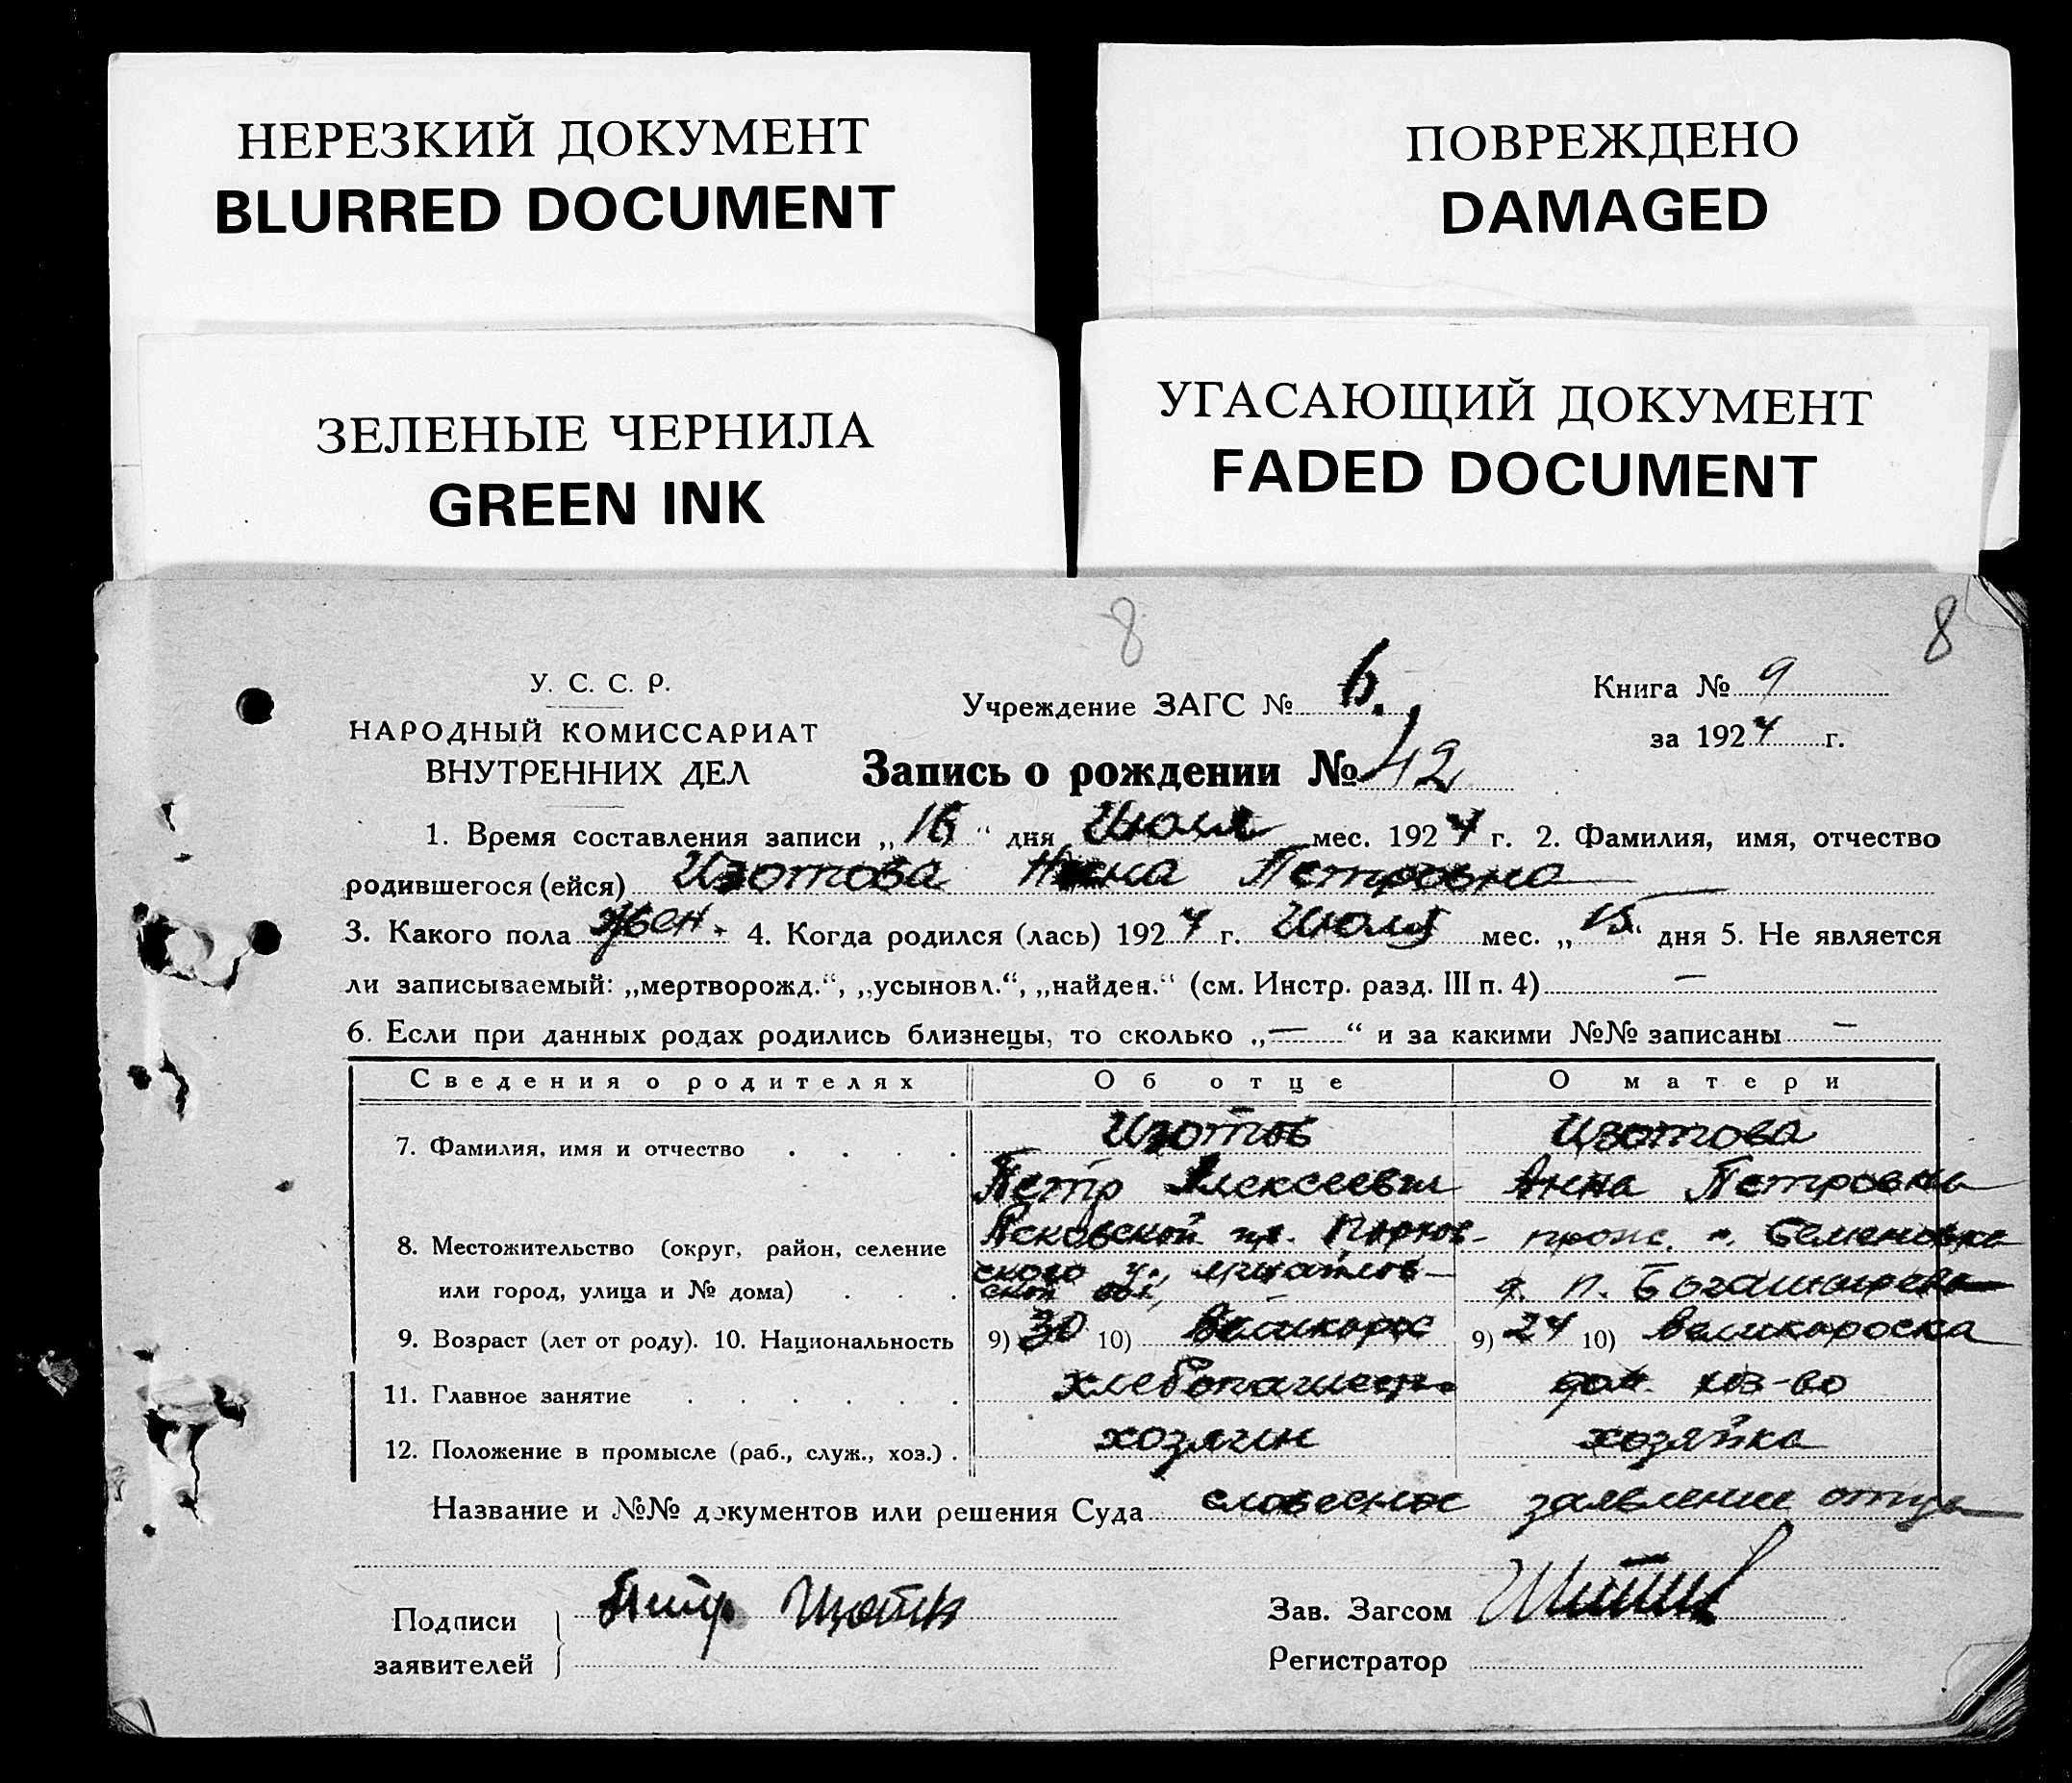 НЕРЕЗКИЙ ДОКУМЕНТ
BLURRED DOCUMENT
ПОВРЕЖДЕНО
DAMAGED
ЗЕЛЕНЫЕ ЧЕРНИЛА
GREEN INK
УГАСАЮЩИЙ ДОКУМЕНТ
FADED DOCUMENT
8
8
У. С. С. Р.
НАРОДНЫЙ КОМИССАРИАТ
ВНУТРЕННИХ ДЕЛ
Учреждение ЗАГС № 6.
Книга № 9
за 1924 г.
Запись о рождении № 42
1. Время составления записи „16“ дня Июля мес. 1924 г. 2. Фамилия, имя, отчество
родившегося (ейся) Изотова Нина Петровна
3. Какого пола жен. 4. Когда родился (лась) 1924 г. Июля мес. „15“ дня 5. Не является
ли записываемый: „мертворожд.“, „усыновл.“, „найден.“ (см. Инстр. разд. III п. 4) —
6. Если при данных родах родились близнецы, то сколько „—“ и за какими №№ записаны —
Сведения о родителях Об отце О матери
7. Фамилия, имя и отчество . . . . Изотов Изотова
Петр Алексеевич Анна Петровна
8. Местожительство (округ, район, селение Псковской проис. Семеновка
или город, улица и № дома) . . . ского у., п.
9. Возраст (лет от роду). 10. Национальность 9) 30 10) великорос 9) 24 10) великороска
11. Главное занятие . . . . . . хлебопашец дом. хоз-во
12. Положение в промысле (раб., служ., хоз.) . хозяин хозяйка
Название и №№ документов или решения Суда словесное заявление отца
Подписи
заявителей
Петр Изотов
Зав. Загсом
Регистратор